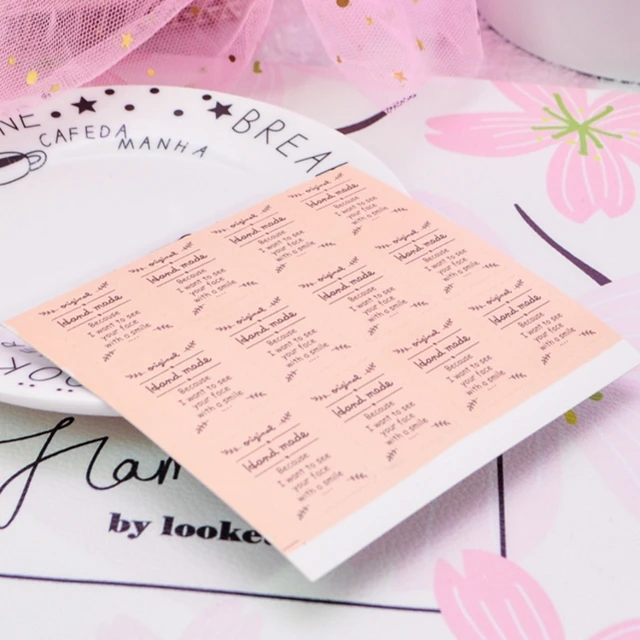 CAFEDA
MANHA
BREA
original
Hand made
Because
I want to see
your face
with a smile
original
Hand made
Because
I want to see
your face
with a smile
original
Hand made
Because
I want to see
your face
with a smile
original
Hand made
Because
I want to see
your face
with a smile
original
Hand made
Because
I want to see
your face
with a smile
original
Hand made
Because
I want to see
your face
with a smile
original
Hand made
Because
I want to see
your face
with a smile
original
Hand made
Because
I want to see
your face
with a smile
original
Hand made
Because
I want to see
your face
with a smile
original
Hand made
Because
I want to see
your face
with a smile
original
Hand made
Because
I want to see
your face
with a smile
original
Hand made
Because
I want to see
your face
with a smile
by looke